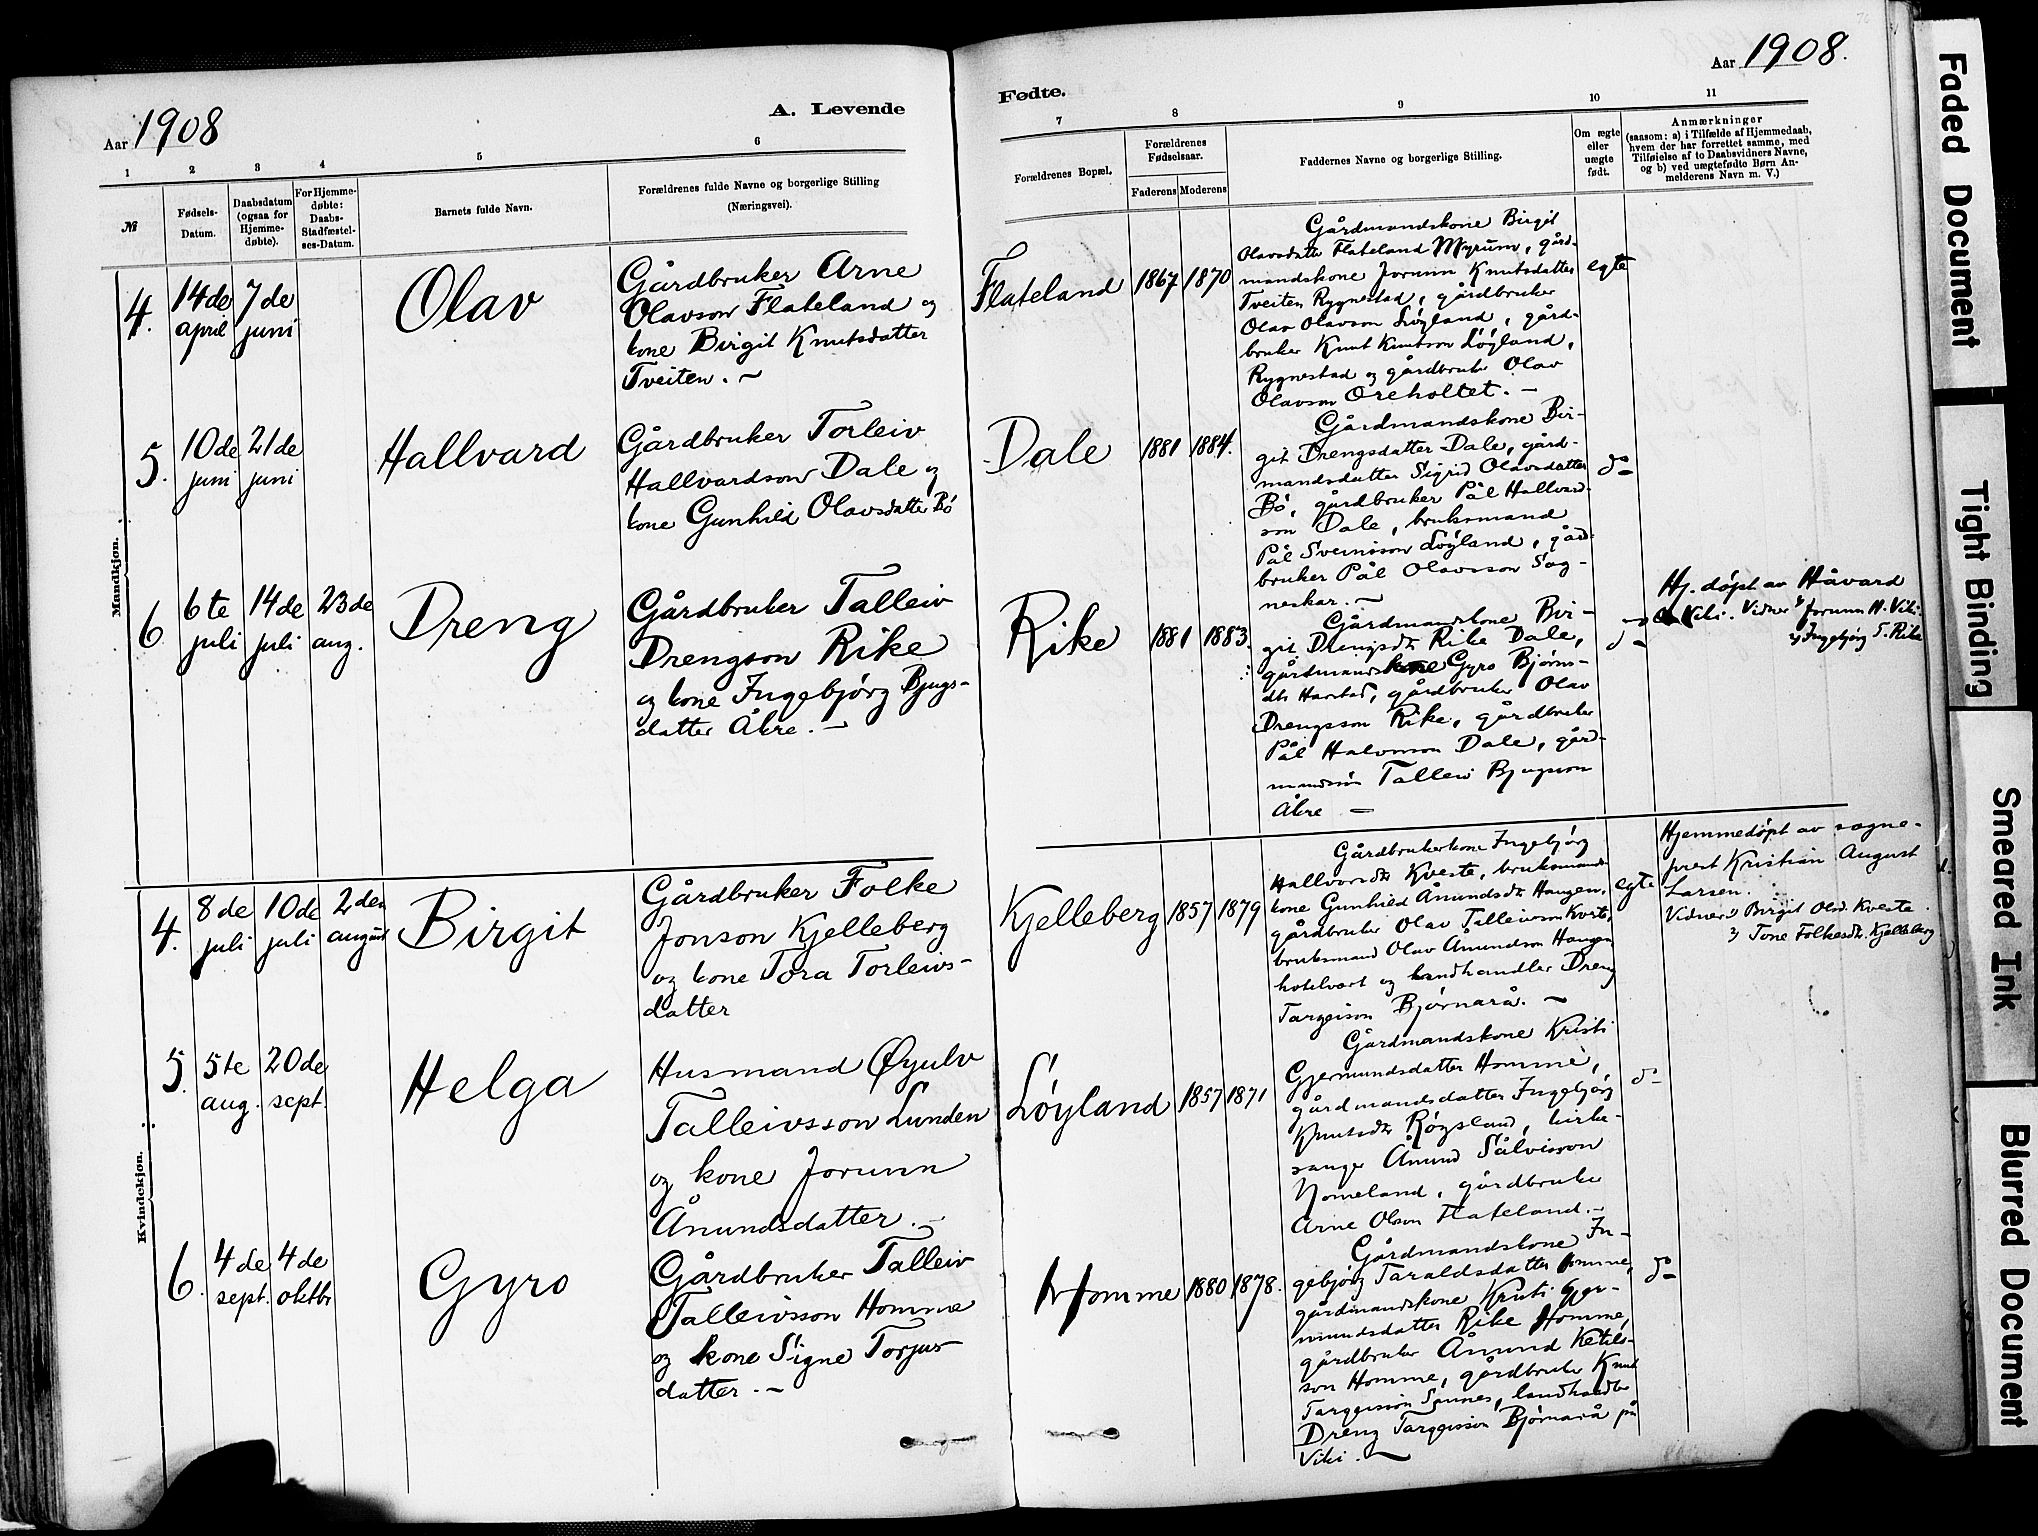 Aar 1908
A. Levende
Fødte.
Aar 1908.
1 2 3 4 5 6
7 8 9 10 11
№
Fødsels-
Datum.
Daabsdatum
(ogsaa for
Hjemme-
døbte).
For Hjemme-
døbte:
Daabs-
Stadfæstel-
ses-Datum.
Barnets fulde Navn.
Forældrenes fulde Navne og borgerlige Stilling
(Næringsvei).
Forældrenes Bopæl.
Forældrenes
Fødselsaar.
Faderens Moderens
Faddernes Navne og borgerlige Stilling.
Om ægte
eller
uægte
født.
Anmærkninger
(saasom: a) i Tilfælde af Hjemmedaab,
hvem der har forrettet samme, med
Tilføielse af to Daabsvidners Navne,
og b) ved uægtefødte Børn An-
melderens Navn m. V.)
Mandkjøn.
4.
14de
april
7de
juni
Olav
Gårdbruker Arne
Olavson Flateland og
kone Birgit Knutsdatter
Tveiten. –
Flateland 1867 1870
Gårdmandskone Birgit
Olavsdatter Flateland Myrum, gård-
mandskone Jorunn Knutsdatter
Tveiten Rygnestad, gårdbruker
Olav Olavson Løyland, gård-
bruker Knut Knutson Løyland,
Rygnestad og gårdbruker Olav
Olavson Oreholtet. –
egte
5.
10de
juni
21de
juni
Hallvard
Gårdbruker Torleiv
Hallvardson Dale og
kone Gunhild Olavsdatter Bø
Dale 1881 1884.
Gårdmandskone Bir-
git Drengsdatter Dale, gård-
mandsdatter Sigrid Olavsdatter
Bø, gårdbruker Pål Hallvard-
son Dale, bruksmand
Pål Sveinsson Løyland, gård-
bruker Pål Olavsson Sag-
neskar. –
do
6
6te
juli
14de
juli
23de
aug.
Dreng
Gårdbruker Talleiv
Drengson Rike
og kone Ingebjørg Bjugs-
datter Åkre. –
Rike 1881 1883.
Gårdmandskone Bir-
git Drengsdtr Rike Dale,
gårdmandskone Gyro Bjørns-
dtr Harstad, gårdbruker Olav
Drengsson Rike, gårdbruker
Pål Halvorson Dale, gård-
mandssøn Talleiv Bjugson
Åkre –
do
Hj. døpt av Håvard
Viki. Vidner 1) Jorunn H. Viki
2) Ingebjørg T. Rike
Kvindekjøn.
4.
8de
juli
10de
juli
2den
august
Birgit
Gårdbruker Folke
Jonson Kjelleberg
og kone Tora Torleivs-
datter
Kjelleberg 1857 1879
Gårdbrukerkone Ingebjørg
Hallvorsdtr Kveste, bruksmands-
kone Gunhild Ånundsdtr Haugen,
gårdbruker Olav Talleivson Kveste,
bruksmand Olav Ånundson Haugen
hotelvært og landhandler Dreng
Targeison Bjørnarå. –
egte
Hjemmedøpt av sogne-
prest Kristian August
Larsen.
Vidner: Birgit Olsd. Kveste
2) Tone Folkesdtr. Kjelleberg
5.
5te
aug.
20de
sept.
Helga
Husmand Øyulv
Talleivsson Lunden
og kone Jorunn
Ånundsdatter. –
Løyland 1857 1871
Gårdmandskone Kristi
Gjermundsdatter Homme,
gårdmandsdatter Ingebjørg
Knutsdtr Røysland, kirke-
sanger Ånund Sålvisson
Nomeland, gårdbruker
Arne Olson Flateland. –
do
6.
4de
sept.
4de
oktbr
Gyro
Gårdbruker Talleiv
Talleivsson Homme
og kone Signe Torjus-
datter. –
Homme 1880 1878.
Gårdmandskone In-
gebjørg Taraldsdatter Homme,
gårdmandskone Kristi Gjer-
mundsdatter Rike Homme,
gårdbruker Ånund Ketils-
son Homme, gårdbruker Knut
Targgeisson Spunes, landhandler
Dreng Targgeisson Bjørnarå på
Viki. –
do
Faded Document
Tight Binding
Smeared Ink
Blurred Document